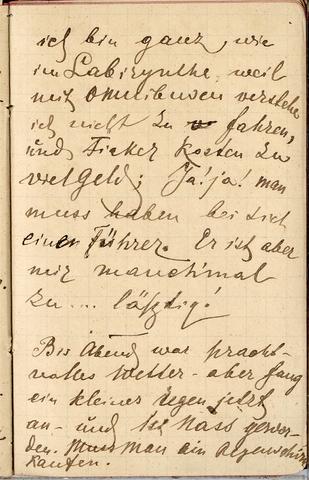 ich bin ganz, wie
im Labirynthe, weil
mit Omnibusen verstehe
ich nicht zu fahren,
und Fiaker kosten zu
viel Geld; Ja! ja! man
muss haben bei sich
einen Führer. Er ist aber
mir manchmal
zu ... lästig!
Bis Abend war pracht-
volles Wetter - aber fang
ein kleiner Regen jetzt
an - und ist Nass gewor-
den. Muss man ein Regenschirm
kaufen.